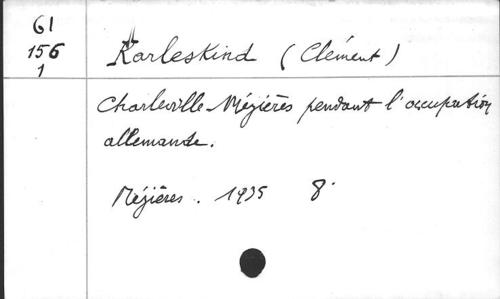 61
156
1
Karleskind (Clément)
Charleville-Mézières pendant l'occupation
allemande.
Mézières. 1935 8°